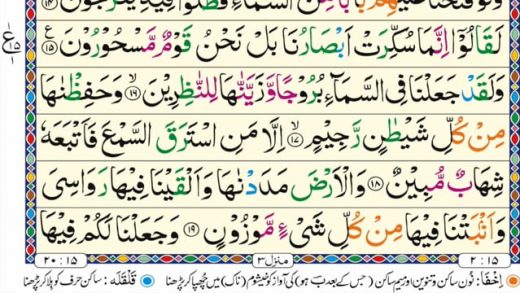 وَلَوْ فَتَحْنَا عَلَيْهِمْ بَابًا مِّنَ السَّمَآءِ فَظَلُّوْا فِيْهِ يَعْرُجُوْنَ ۙ‏﴿۱۴﴾
لَقَالُوْۤا اِنَّمَا سُكِّرَتْ اَبْصَارُنَا بَلْ نَحْنُ قَوْمٌ مَّسْحُوْرُوْنَ ﴿۱۵﴾ ع ۱۵ ۱
وَلَقَدْ جَعَلْنَا فِى السَّمَآءِ بُرُوْجًا وَّزَيَّنّٰهَا لِلنّٰظِرِيْنَ ۙ﴿۱۶﴾ وَحَفِظْنٰهَا
مِنْ كُلِّ شَيْطٰنٍ رَّجِيْمٍ ۙ﴿۱۷﴾ اِلَّا مَنِ اسْتَرَقَ السَّمْعَ فَاَتْبَعَهٗ
شِهَابٌ مُّبِيْنٌ ﴿۱۸﴾ وَالْاَرْضَ مَدَدْنٰهَا وَاَلْقَيْنَا فِيْهَا رَوَاسِىَ
وَاَنْۢبَتْنَا فِيْهَا مِنْ كُلِّ شَىْءٍ مَّوْزُوْنٍ ﴿۱۹﴾ وَجَعَلْنَا لَكُمْ فِيْهَا
۲ : ۱۵ منزل ۳ ۲۰ : ۱۵
اِخْفَا: نُون ساکن و تنوین اور میم ساکن (جس کے بعد ب ہو) کی آواز کو خیشوم (ناک) میں چھپا کر پڑھنا قَلْقَلَه: ساکن حرف کو ہلا کر پڑھنا